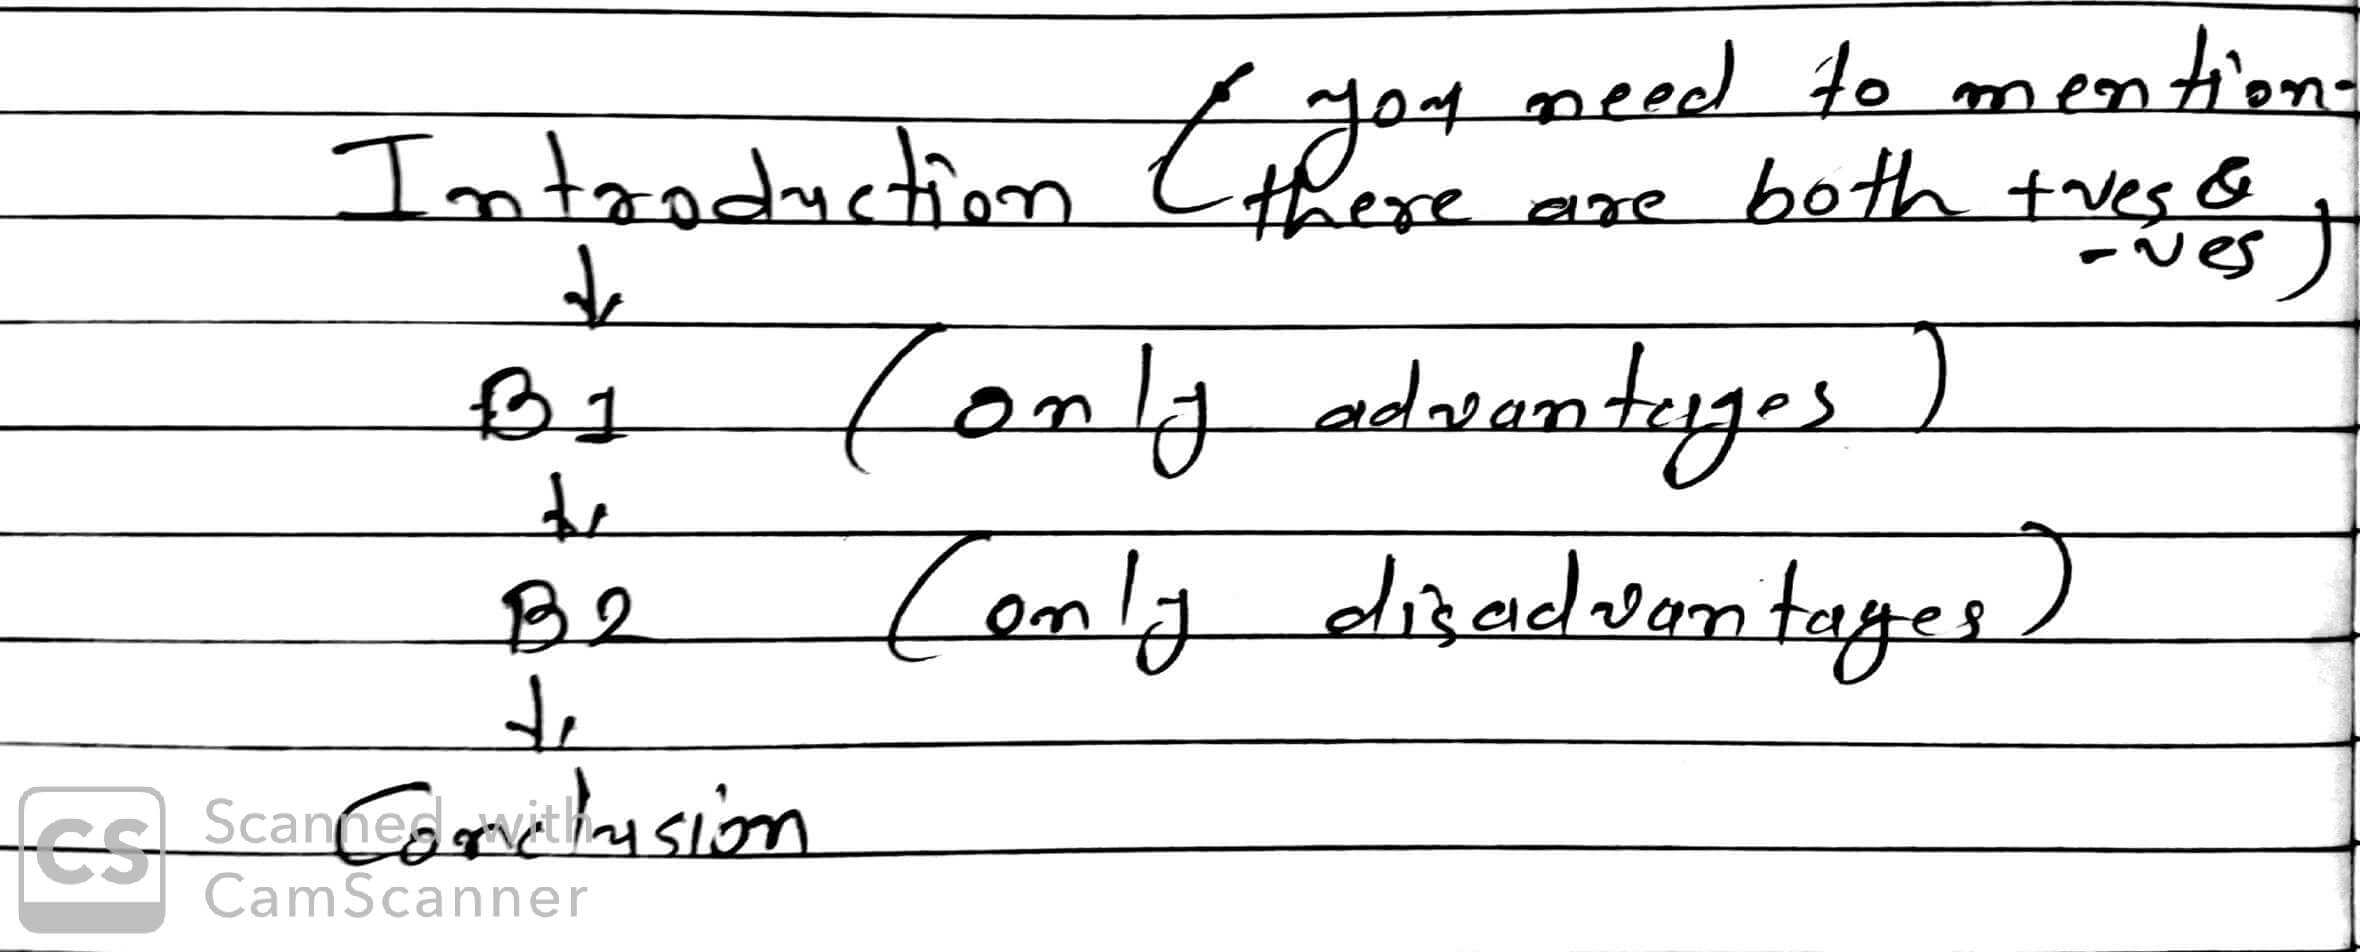 (you need to mention-
Introduction there are both +ves &
-ves)
↓
B1 (only advantages)
↓
B2 (only disadvantages)
↓
Conclusion
CS Scanned with
CamScanner